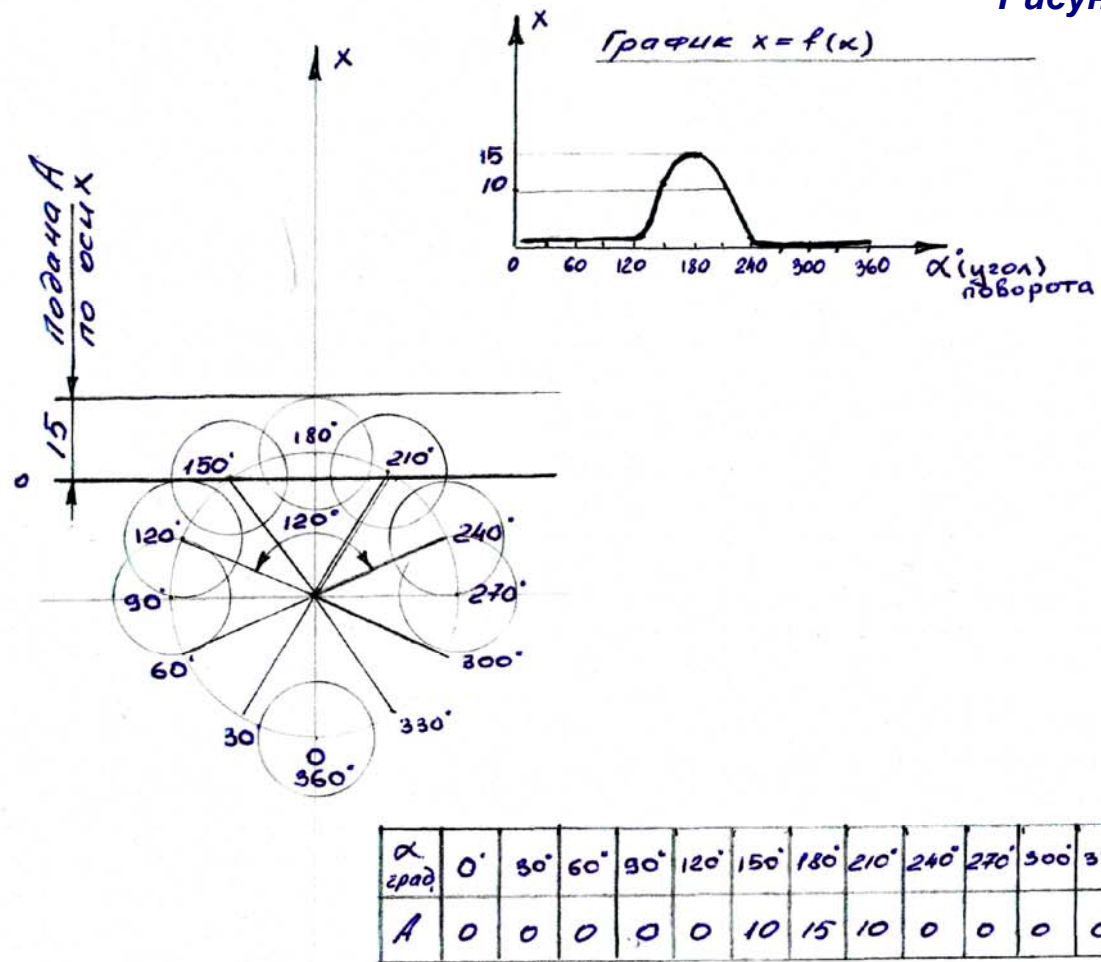 Рисун
X
График x = f(α)
15
10
0 60 120 180 240 300 360
α°(угол)
поворота
X
подача А
по оси X
15
0
180°
150°
210°
120°
120°
240°
90°
270°
60°
300°
30°
330°
0
360°
α град. 0° 30° 60° 90° 120° 150° 180° 210° 240° 270° 300° 3
A 0 0 0 0 0 10 15 10 0 0 0 0